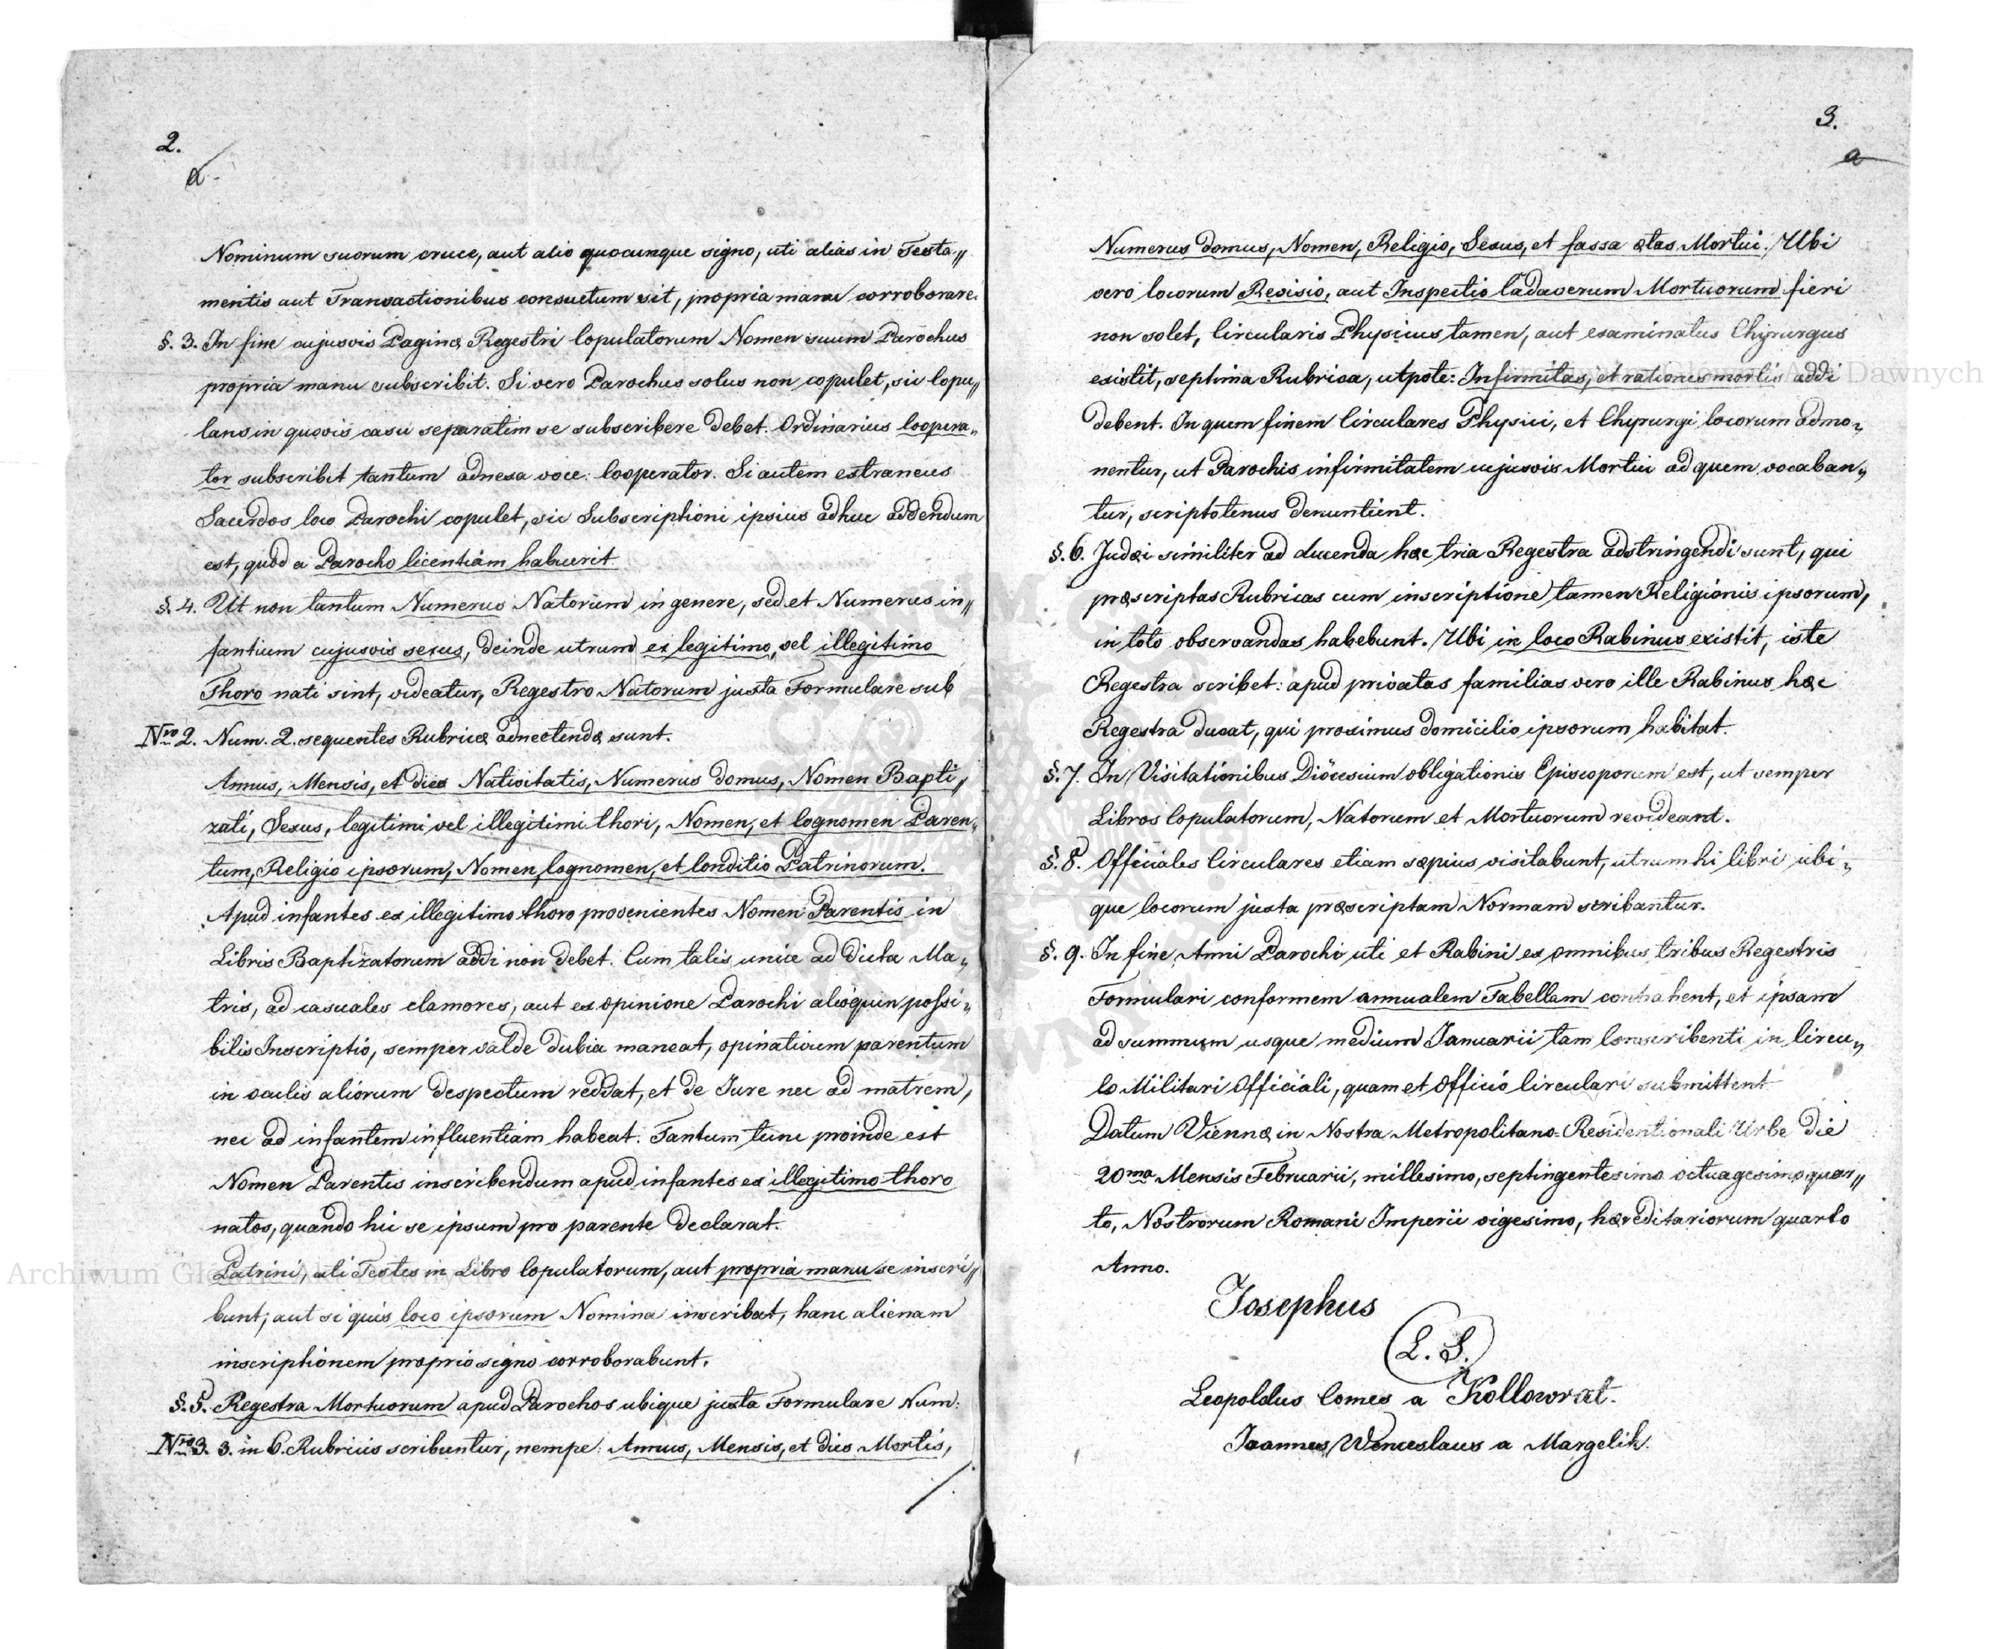 2.
a.
Nominum suorum cruce, aut alio quocunque signo, uti alias in Testa„
mentis aut Transactionibus consuetum sit, propria manu corroborare.
§. 3. In fine cujusvis Paginæ Regestri Copulatorum Nomen suum Parochus
propria manu subscribit. Si vero Parochus solus non copulet, sic Copu„
lans in quovis casu separatim se subscribere debet. Ordinarius Coopera„
tor subscribit tantum adnexa voce: Cooperator. Si autem extraneus
Sacerdos loco Parochi copulet, sic Subscriptioni ipsius adhuc addendum
est, quod a Parocho licentiam habuerit
§. 4. Ut non tantum Numerus Natorum in genere, sed et Numerus in„
fantium cujusvis sexus, deinde utrum ex legitimo, vel illegitimo
Thoro nati sint, videatur, Regestro Natorum juxta Formulare sub
Nro 2. Num. 2. sequentes Rubricæ adnectendæ sunt.
Annus, Mensis, et dies Nativitatis, Numerus domus, Nomen Bapti„
zati, Sexus, legitimi vel illegitimi thori, Nomen, et Cognomen Paren„
tum, Religio ipsorum, Nomen, Cognomen, et Conditio Patrinorum.
Apud infantes ex illegitimo thoro provenientes Nomen Parentis in
Libris Baptizatorum addi non debet. Cum talis unice ad dicta Ma„
tris, ad casuales clamores, aut ex opinione Parochi alioquin possi„
bilis Inscriptio, semper valde dubia maneat, opinativum parentum
in oculis aliorum despectum reddat, et de Iure nec ad matrem,
nec ad infantem influentiam habeat. Tantum tunc proinde est
Nomen Parentis inscribendum apud infantes ex illegitimo thoro
natos, quando hic se ipsum pro parente declarat.
Patrini, uti Testes in Libro Copulatorum, aut propria manu se inscri„
bunt, aut si quis loco ipsorum Nomina inscribat, hanc alienam
inscriptionem proprio signo corroborabunt.
§. 5. Regestra Mortuorum apud Parochos ubique juxta Formulare Num:
Nro 3. 3. in 6. Rubricis scribuntur, nempe: Annus, Mensis, et dies Mortis,
3.
a
Numerus domus, Nomen, Religio, Sexus, et fassa ætas Mortui. Ubi
vero locorum Revisio, aut Inspectio Cadaverum Mortuorum fieri
non solet, Circularis Physicus tamen, aut examinatus Chyrurgus
existit, septima Rubrica, utpote: Infirmitas, et rationes mortis addi
debent. In quem finem Circulares Physici, et Chyrurgi locorum admo„
nentur, ut Parochis infirmitatem cujusvis Mortui ad quem vocaban„
tur, scriptotenus denuntient.
§. 6. Judæi similiter ad ducenda hæc tria Regestra adstringendi sunt, qui
præscriptas Rubricas cum inscriptione tamen Religionis ipsorum,
in toto observandas habebunt. Ubi in loco Rabinus existit, iste
Regestra scribet: apud privatas familias vero ille Rabinus hæc
Regestra ducat, qui proximus domicilio ipsorum habitat.
§. 7. In Visitationibus Diöcesium obligationis Episcoporum est, ut semper
Libros Copulatorum, Natorum et Mortuorum revideant.
§. 8. Officiales Circulares etiam sæpius visitabunt, utrum hi libri ubi„
que locorum juxta præscriptam Normam scribantur.
§. 9. In fine Anni Parochi uti et Rabini ex omnibus tribus Regestris
Formulari conformem annualem Tabellam contrahent, et ipsam
ad summum usque medium Januarii tam Conscribenti in Circu„
lo Militari Officiali, quam et Officio Circulari submittent
Datum Viennæ in Nostra Metropolitano-Residentionali Urbe die
20ma Mensis Februarii, millesimo, septingentesimo octuagesimo quar„
to, Nostrorum Romani Imperii vigesimo, hæreditariorum quarto
Anno.
Josephus
L. S.
Leopoldus Comes a Kollowrat.
Joannes Wenceslaus a Margelik.